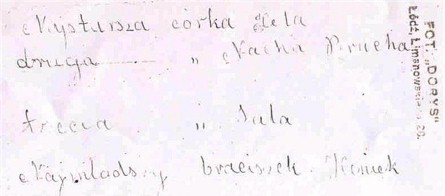 Najstarsza córka Hela
druga " Nacha Brucha
trecia " Sala
Najmlodszy braciszek Heniek
FOT. "DORYS"
Łódź, Limanowskiego 26.